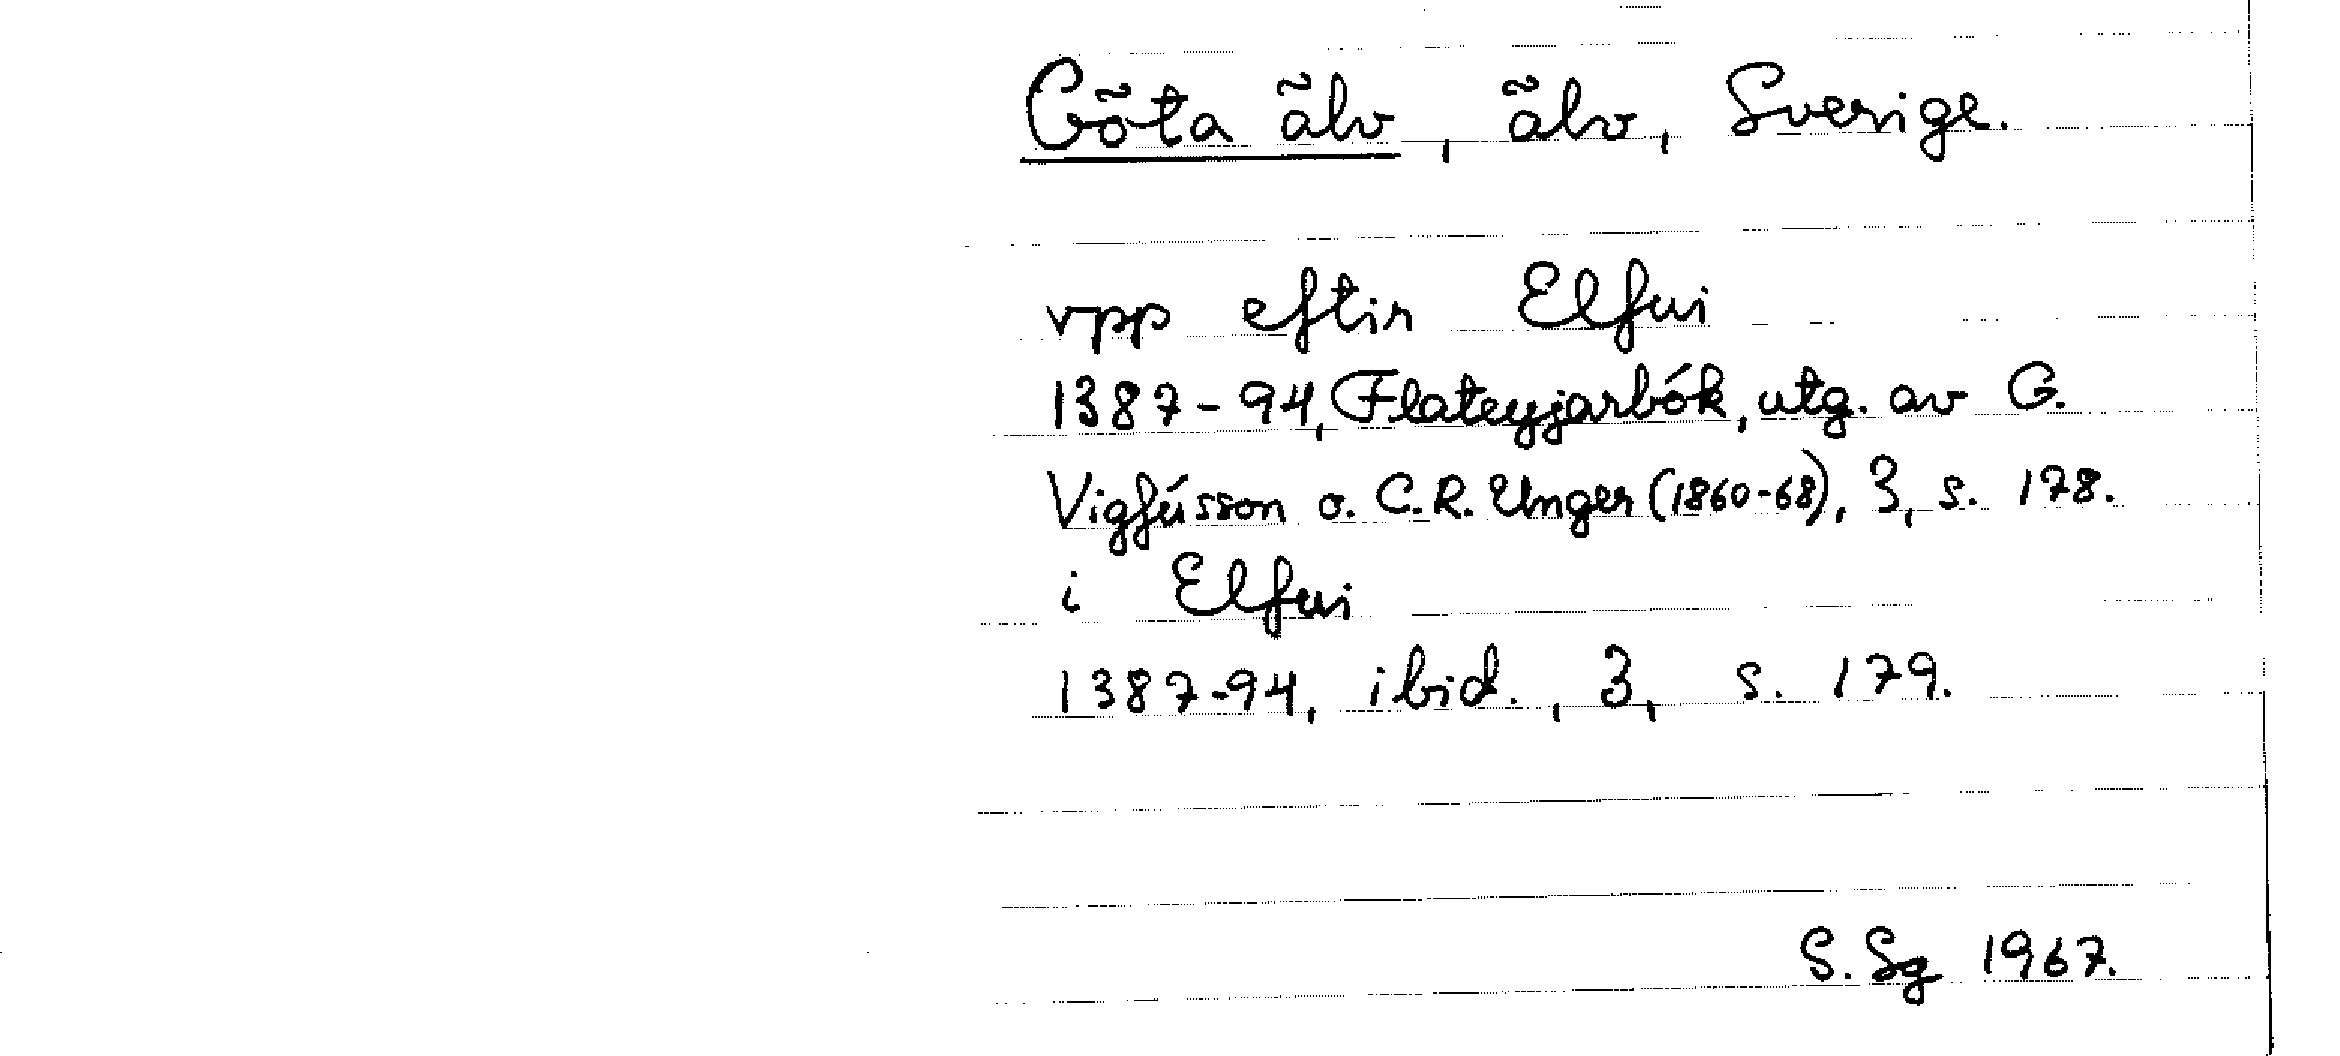 Göta älv, älv, Sverige.
vpp eftir Elfui
1387-94, Flateyjarbók, utg. av G.
Vigfússon o. C.R. Unger (1860-68), 3, s. 178.
i Elfui
1387-94, ibid., 3, s. 179.
S. Sg 1967.